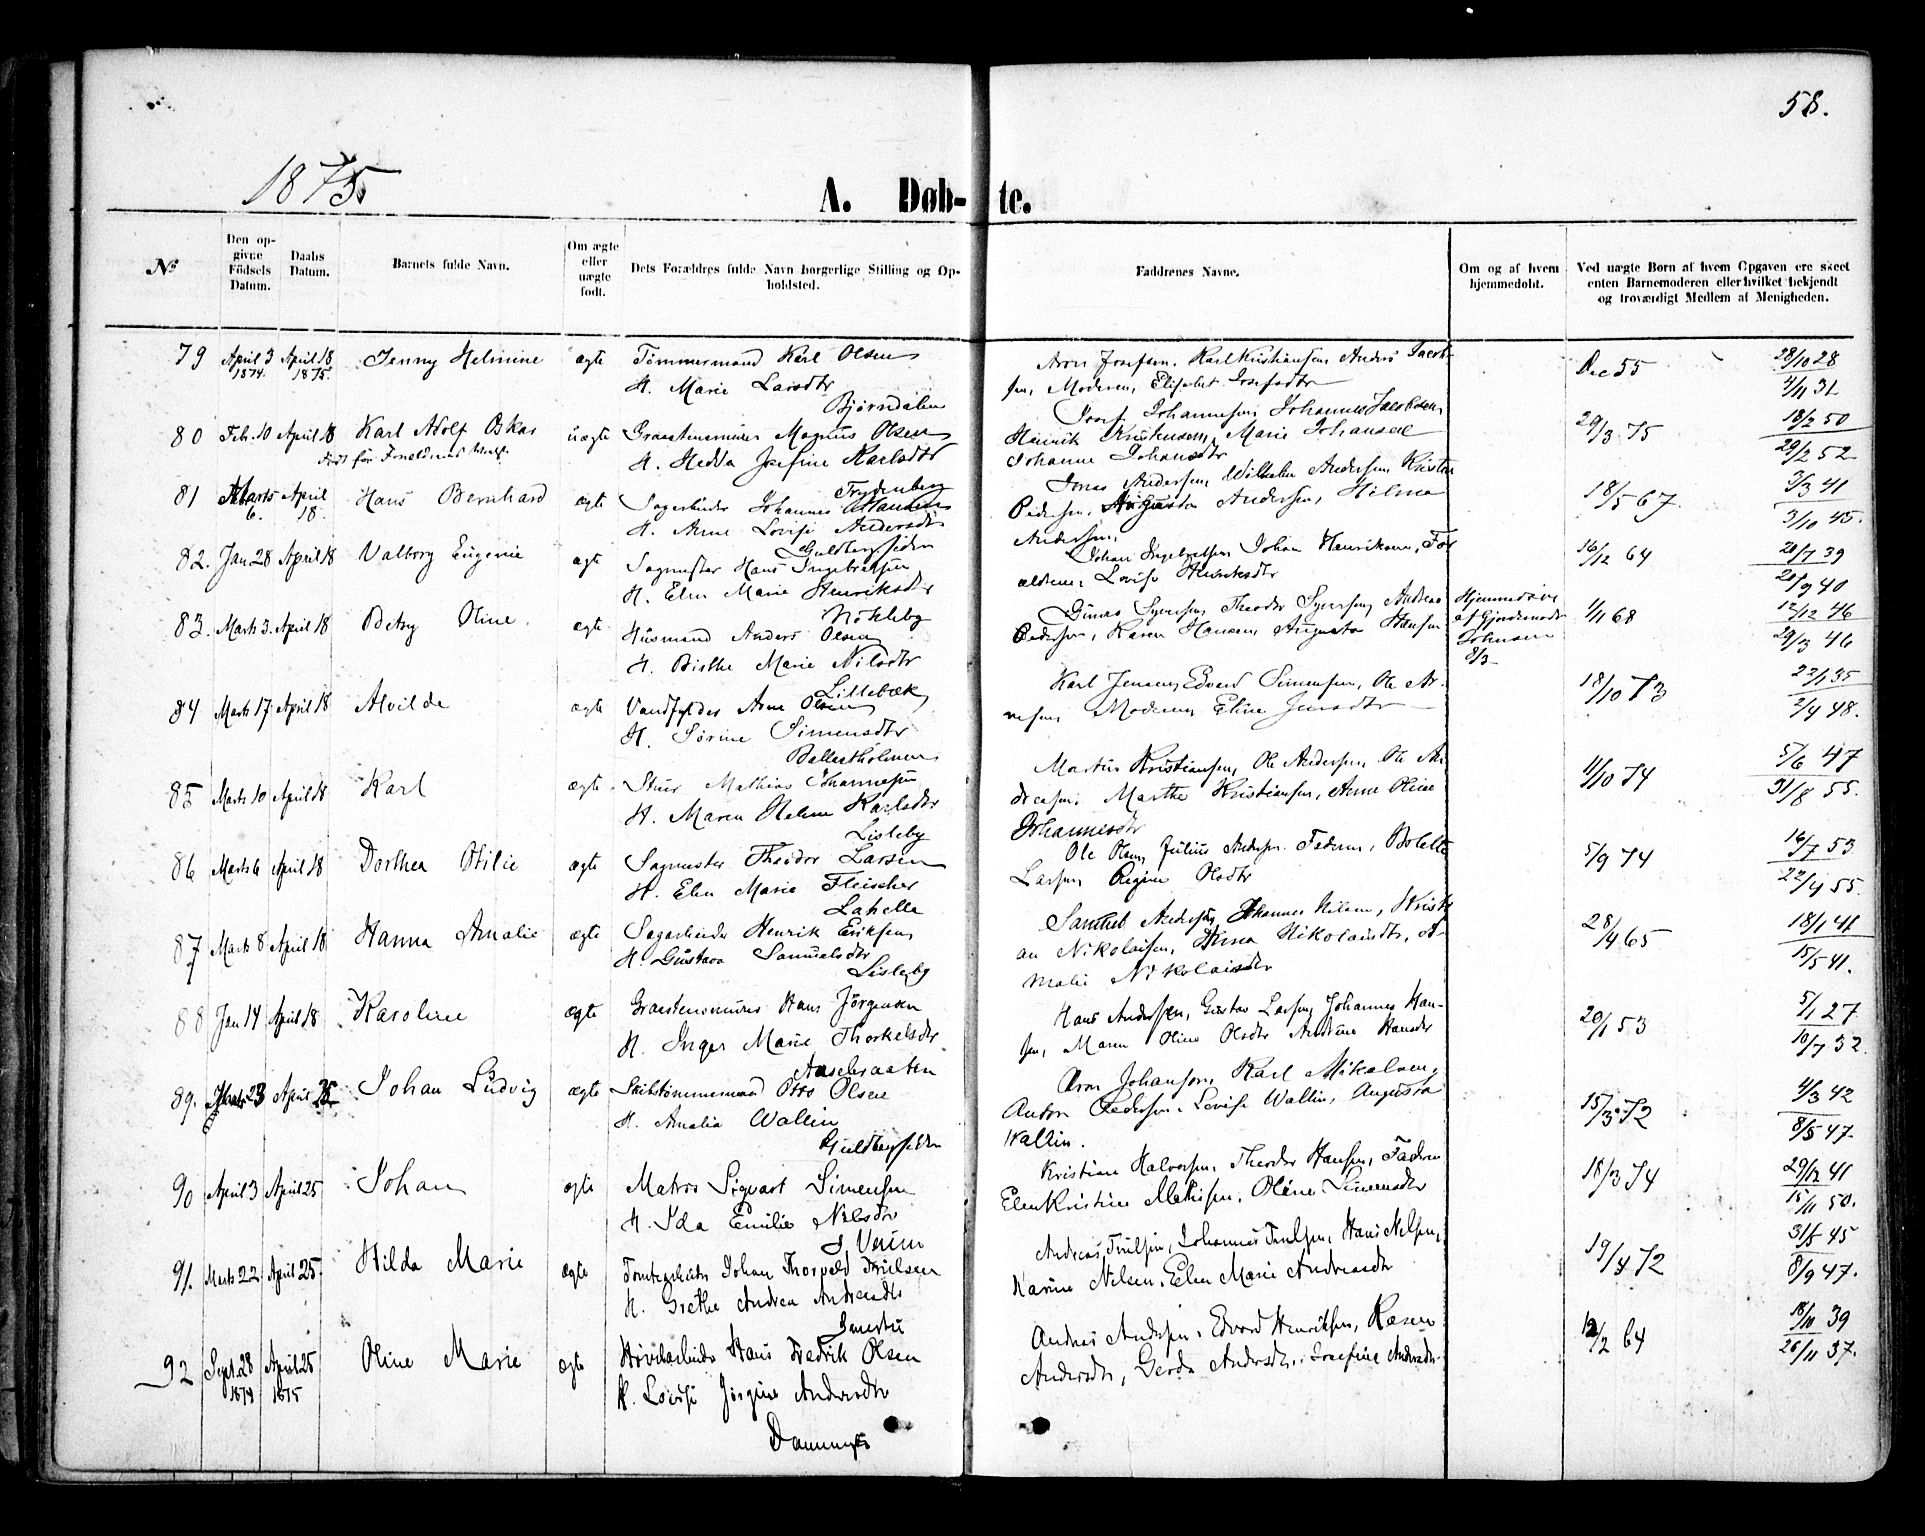 58.
1875
A. Døb-te.
No
Den opgivne Födsels Datum.
Daabs Datum.
Barnets fulde Navn.
Om ægte eller uægte født.
Dets Forældres fulde Navn borgerlige Stilling og Opholdsted.
Faddrenes Navne.
Om og af hvem hjemmedøbt.
Ved uægte Børn af hvem Opgaven ere skeet enten Barnemoderen eller hvilket bekjendt og troværdigt Medlem af Menigheden.
79 April 3 1874. April 18 1875. Jenny Helmine ægte Tømmermand Karl Olsen
H. Marie Larsdtr
Bjørndalen
Aron Josefsen, Karl Kristiansen, Anders Jacob-
sen, Moderen, Elisabet Josefsdtr
Dec 55
28/10 28
4/11 31
80 Feb. 10 April 18 Karl Adolf Oskar uægte Graastensmurer Magnus Olsen
født før Forældrenes
H. Hedda Josefine Karlsdtr
Trydenberg
Josef Johannesen, Johannes Jacobsen,
Henrik Kristensen, Marie Johansen
Johanne Johansdtr
29/3 75
18/2 50
29/2 52
81 Marts 6. April 18. Hans Bernhard ægte Sagarbeider Johannes Hansen
H. Anne Lovise Andersdtr
Guldbergsiden
Jonas Andersen, Wilhelm Andersen, Kristen
Pedersen, Augusta Andersen, Hilma
Andersen.
18/5 67
3/3 41
3/10 45.
82. Jan 28 April 18 Valborg Eugenie ægte Sagmester Hans Ingebretsen
H. Elen Marie Henriksdtr
Nökleby
Johan Ingebretsen, Johan Henriksen, For-
ældrene, Lovise Henriksdtr
16/12 64
20/7 39
20/9 40
83. Marts 3. April 18 Betsy Oline. ægte Husmand Anders Olsen
H. Birthe Marie Nilsdtr
Lillebæk
Dinas Syversen, Theodor Syversen, Andreas
Pedersen, Karen Hansen, Augusta Hansen
Hjemmedøbt
af Gjordemoder
Johnsen
8/3
1/1 68
12/12 46
29/3 46
84 Marts 17 April 18 Alvilde ægte Vandfylder Arne Olsen
H. Sörine Simensdtr
Ballastholmen
Karl Jensen, Edvard Simensen, Ole Ar-
nesen, Moderen, Eline Jensdtr
18/10 73
23/1 35
2/4 48.
85 Marts 10 April 18 Karl ægte Stuer Mathias Johannesen
H. Maren Helene Karlsdtr
Lisleby
Martin Kristiansen, Ole Andersen, Ole An-
dreasen, Marthe Kristiansen, Anne Oline
Johannesdtr
11/10 74
5/6 47
31/8 55.
86 Marts 6 April 18 Dorthea Otilie ægte Sagmester Theodor Larsen
H. Elen Marie Fleischer
Lahelle
Ole Olsen, Julius Andersen, Faderen, Bolette
Larsen, Regine Olsdtr
5/9 74
16/7 53
22/4 55.
87 Marts 8 April 18 Hanna Amalie ægte Sagarbeider Henrik Eriksen
H. Gustava Samuelsdtr
Lisleby
Samuel Andersen, Johannes Nilsen, Kristi-
an Nikolaisen, Anna Nikolaisdtr, A-
malie Nikolaisdtr
28/4 65
18/1 41
15/5 41.
88 Jan 14 April 18 Karoline ægte Graastensmurer Hans Jörgensen
H. Inger Marie Thorkelsdtr
Aasebraaten
Hans Andersen, Gustav Larsen, Johannes Han-
sen, Maren Oline Olsdtr, Hansdtr
20/1 53
5/1 27
10/7 32.
89. Marts 23 April 25 Johan Ludvig ægte Skibstömmermand Otto Olsen
H. Amalia Wallin
Guldbergsiden
Aron Johansen, Karl Mikalsen,
Anton Pedersen, Lovise Wallin, Augusta
Wallin.
15/3 72
4/3 42
8/5 47.
90 April 3 April 25 Johan ægte Matros Sigvart Simensen
H. Ida Emilie Nilsdtr
Kristian Halvorsen, Theodor Hansen, Faderen
Elen Kristine Mathisen, Oline Simensdtr
18/3 74
29/12 41
15/11 50.
91. Marts 22 April 25 Hilda Marie ægte Tomtearbeider Johan Thorvald Truelsen
H. Grethe Andrea Andreasdtr
Smertu
Andreas Truelsen, Johannes Truelsen, Hans Nelsen,
Karine Nelsen, Elen Marie Andreasdtr
19/4 72
31/5 45
8/9 47.
92 Sept. 28 1874 April 25 1875 Oline Marie ægte Høvlarbeider Hans Fredrik Olsen
H. Lovise Jørgine Andersdtr
Dammyr
Andreas Andersen, Edvard Henriksen, Karen
Andersdtr, Gerda Andersdtr, Josefine Andersdtr
12/2 64
18/10 39
26/11 37.